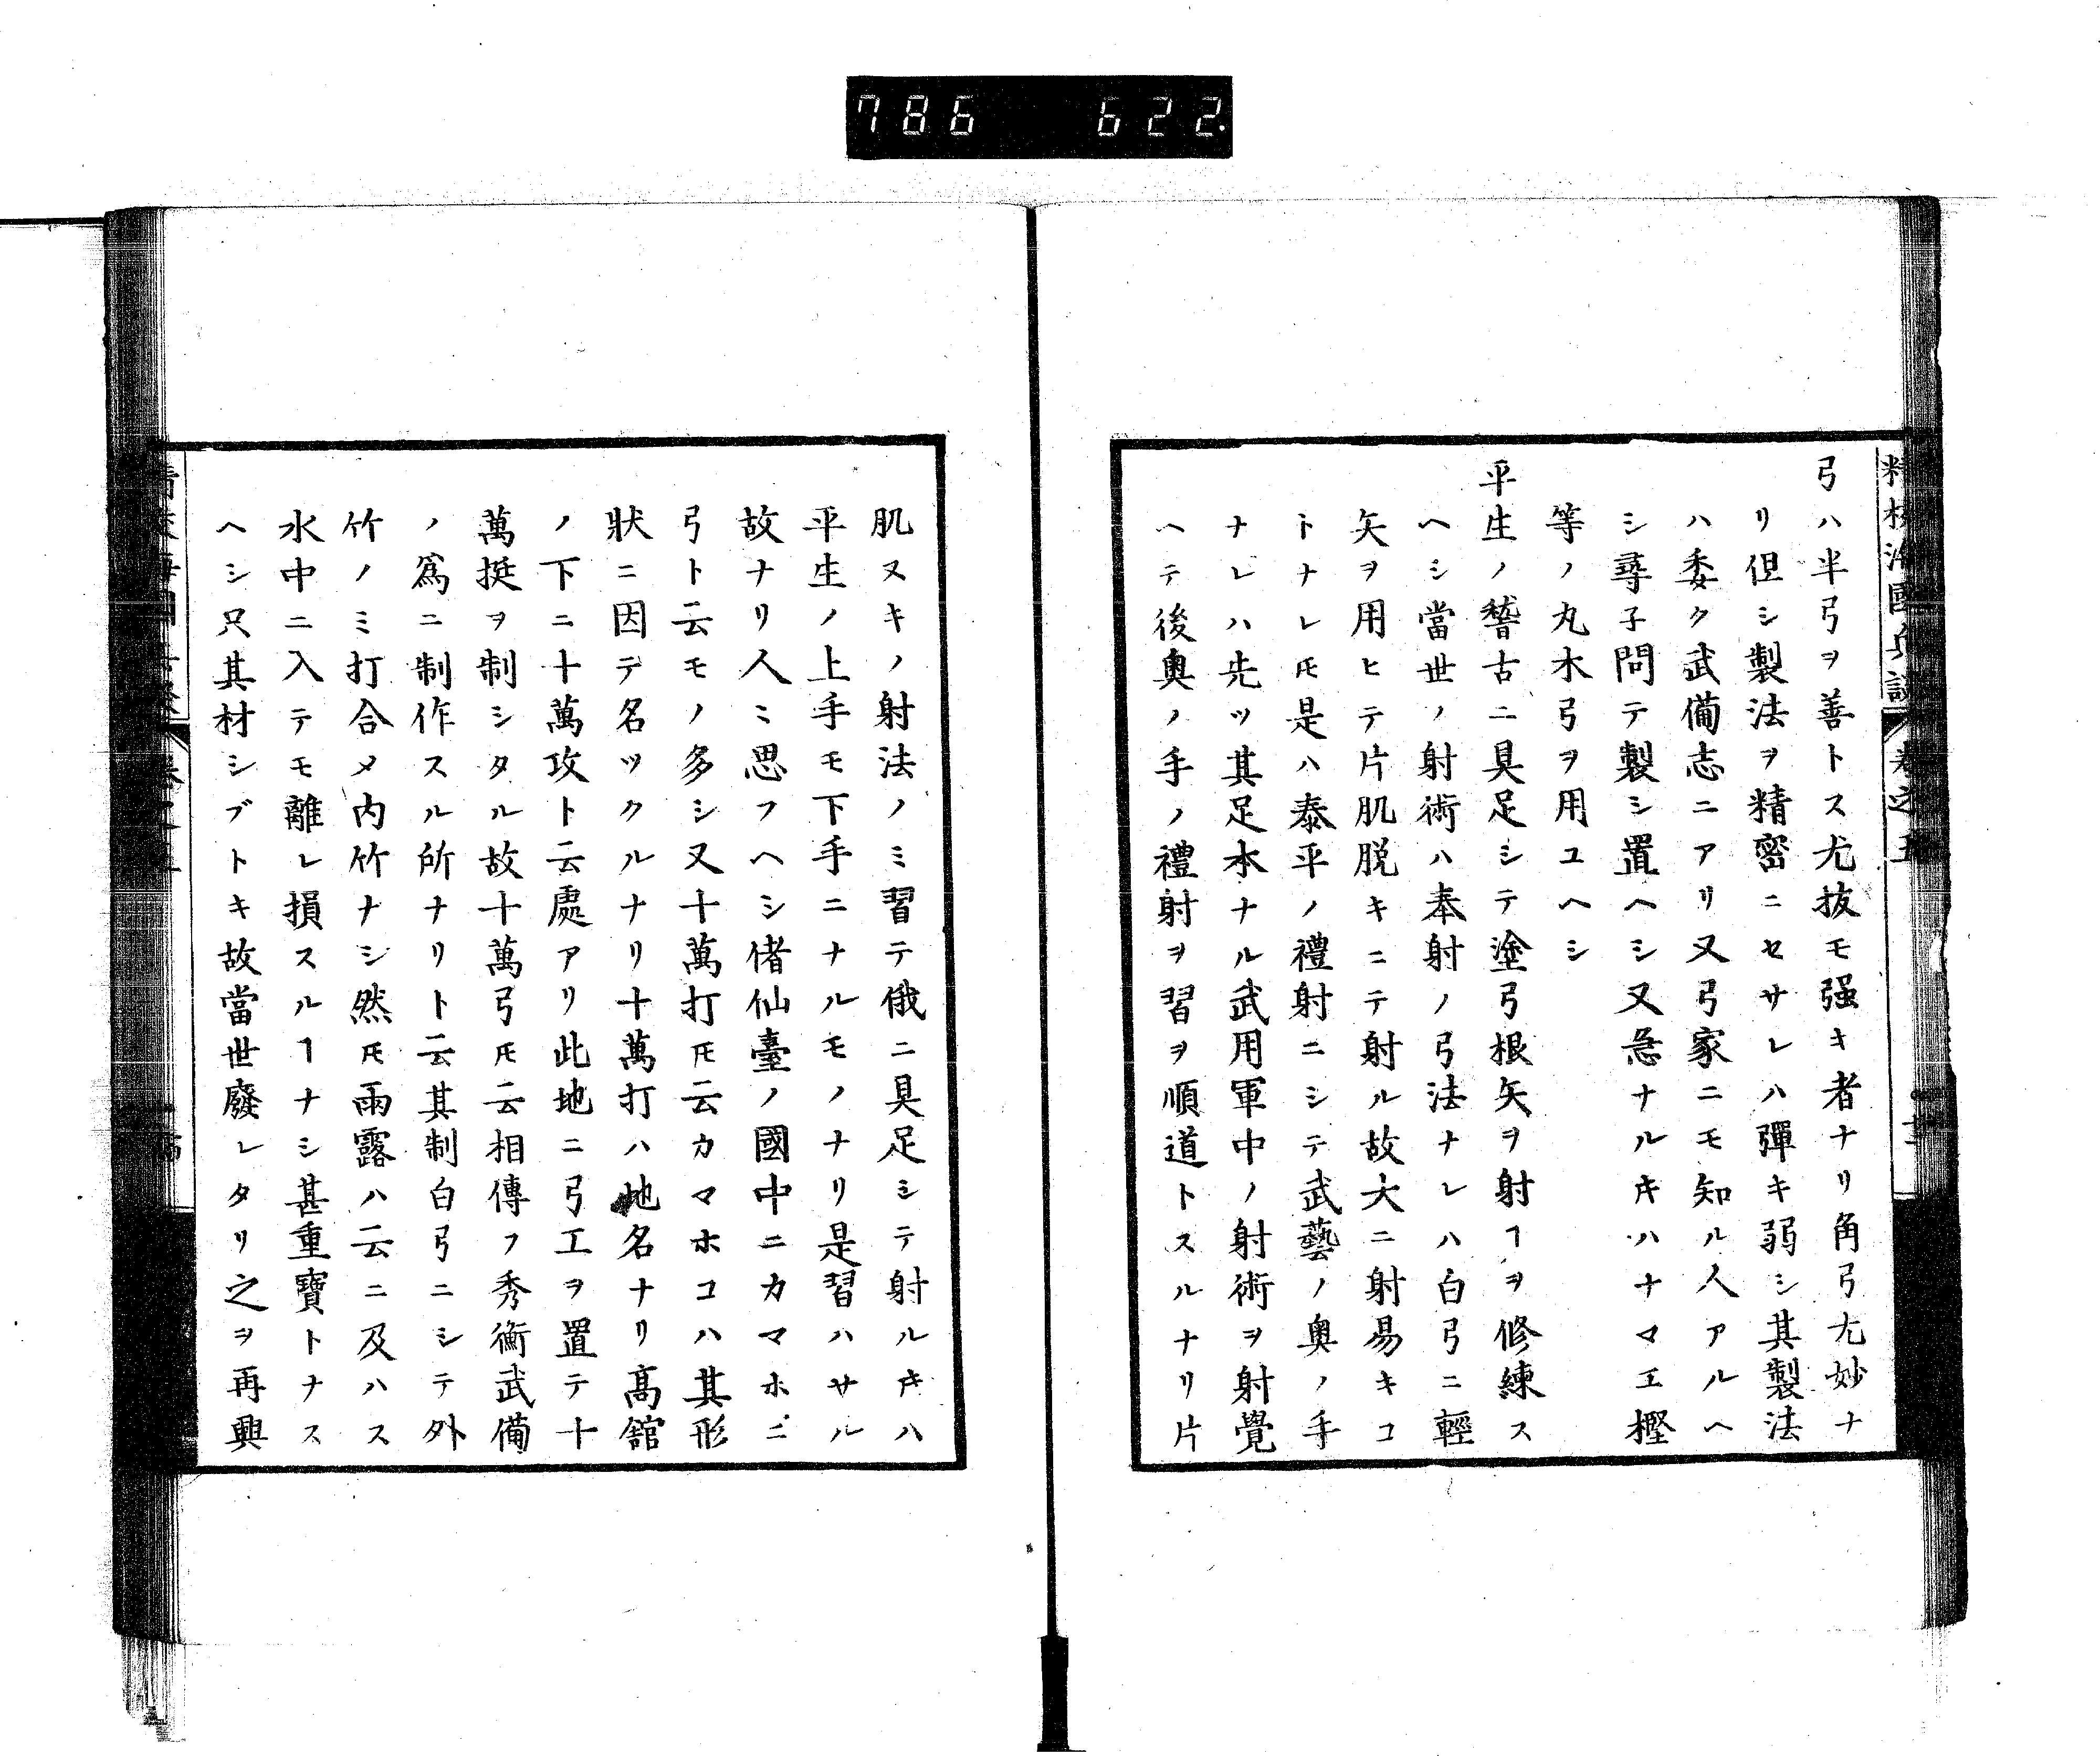 786 622.
精校海國兵談 卷之五
弓ハ半弓ヲ善トス尤抜モ强キ者ナリ角弓尤妙ナ
リ但シ製法ヲ精密ニセサレハ彈キ弱シ其製法
ハ委ク武備志ニアリ又弓家ニモ知ル人アルヘ
シ尋子問テ製シ置ヘシ又急ナルキハナマエ樫
等ノ丸木弓ヲ用ユヘシ
平生ノ稽古ニ具足シテ塗弓根矢ヲ射ヿヲ修練ス
ヘシ當世ノ射術ハ奉射ノ弓法ナレハ白弓ニ輕
矢ヲ用ヒテ片肌脱キニテ射ル故大ニ射易キコ
トナレ𪜈是ハ泰平ノ禮射ニシテ武藝ノ奥ノ手
ナレハ先ツ其足本ナル武用軍中ノ射術ヲ射覺
ヘテ後奥ノ手ノ禮射ヲ習ヲ順道トスルナリ片
肌ヌキノ射法ノミ習テ俄ニ具足シテ射ルキハ
平生ノ上手モ下手ニナルモノナリ是習ハサル
故ナリ人ミ思フヘシ偖仙臺ノ國中ニカマホコ
弓ト云モノ多シ又十萬打𪜈云カマホコハ其形
狀ニ因テ名ツクルナリ十萬打ハ地名ナリ髙舘
ノ下ニ十萬攻ト云處アリ此地ニ弓工ヲ置テ十
萬挺ヲ制シタル故十萬弓𪜈云相傳フ秀衡武備
ノ爲ニ制作スル所ナリト云其制白弓ニシテ外
竹ノミ打合メ内竹ナシ然𪜈雨露ハ云ニ及ハス
水中ニ入テモ離レ損スルヿナシ甚重寶トナス
ヘシ只其材シブトキ故當世廢レタリ之ヲ再興